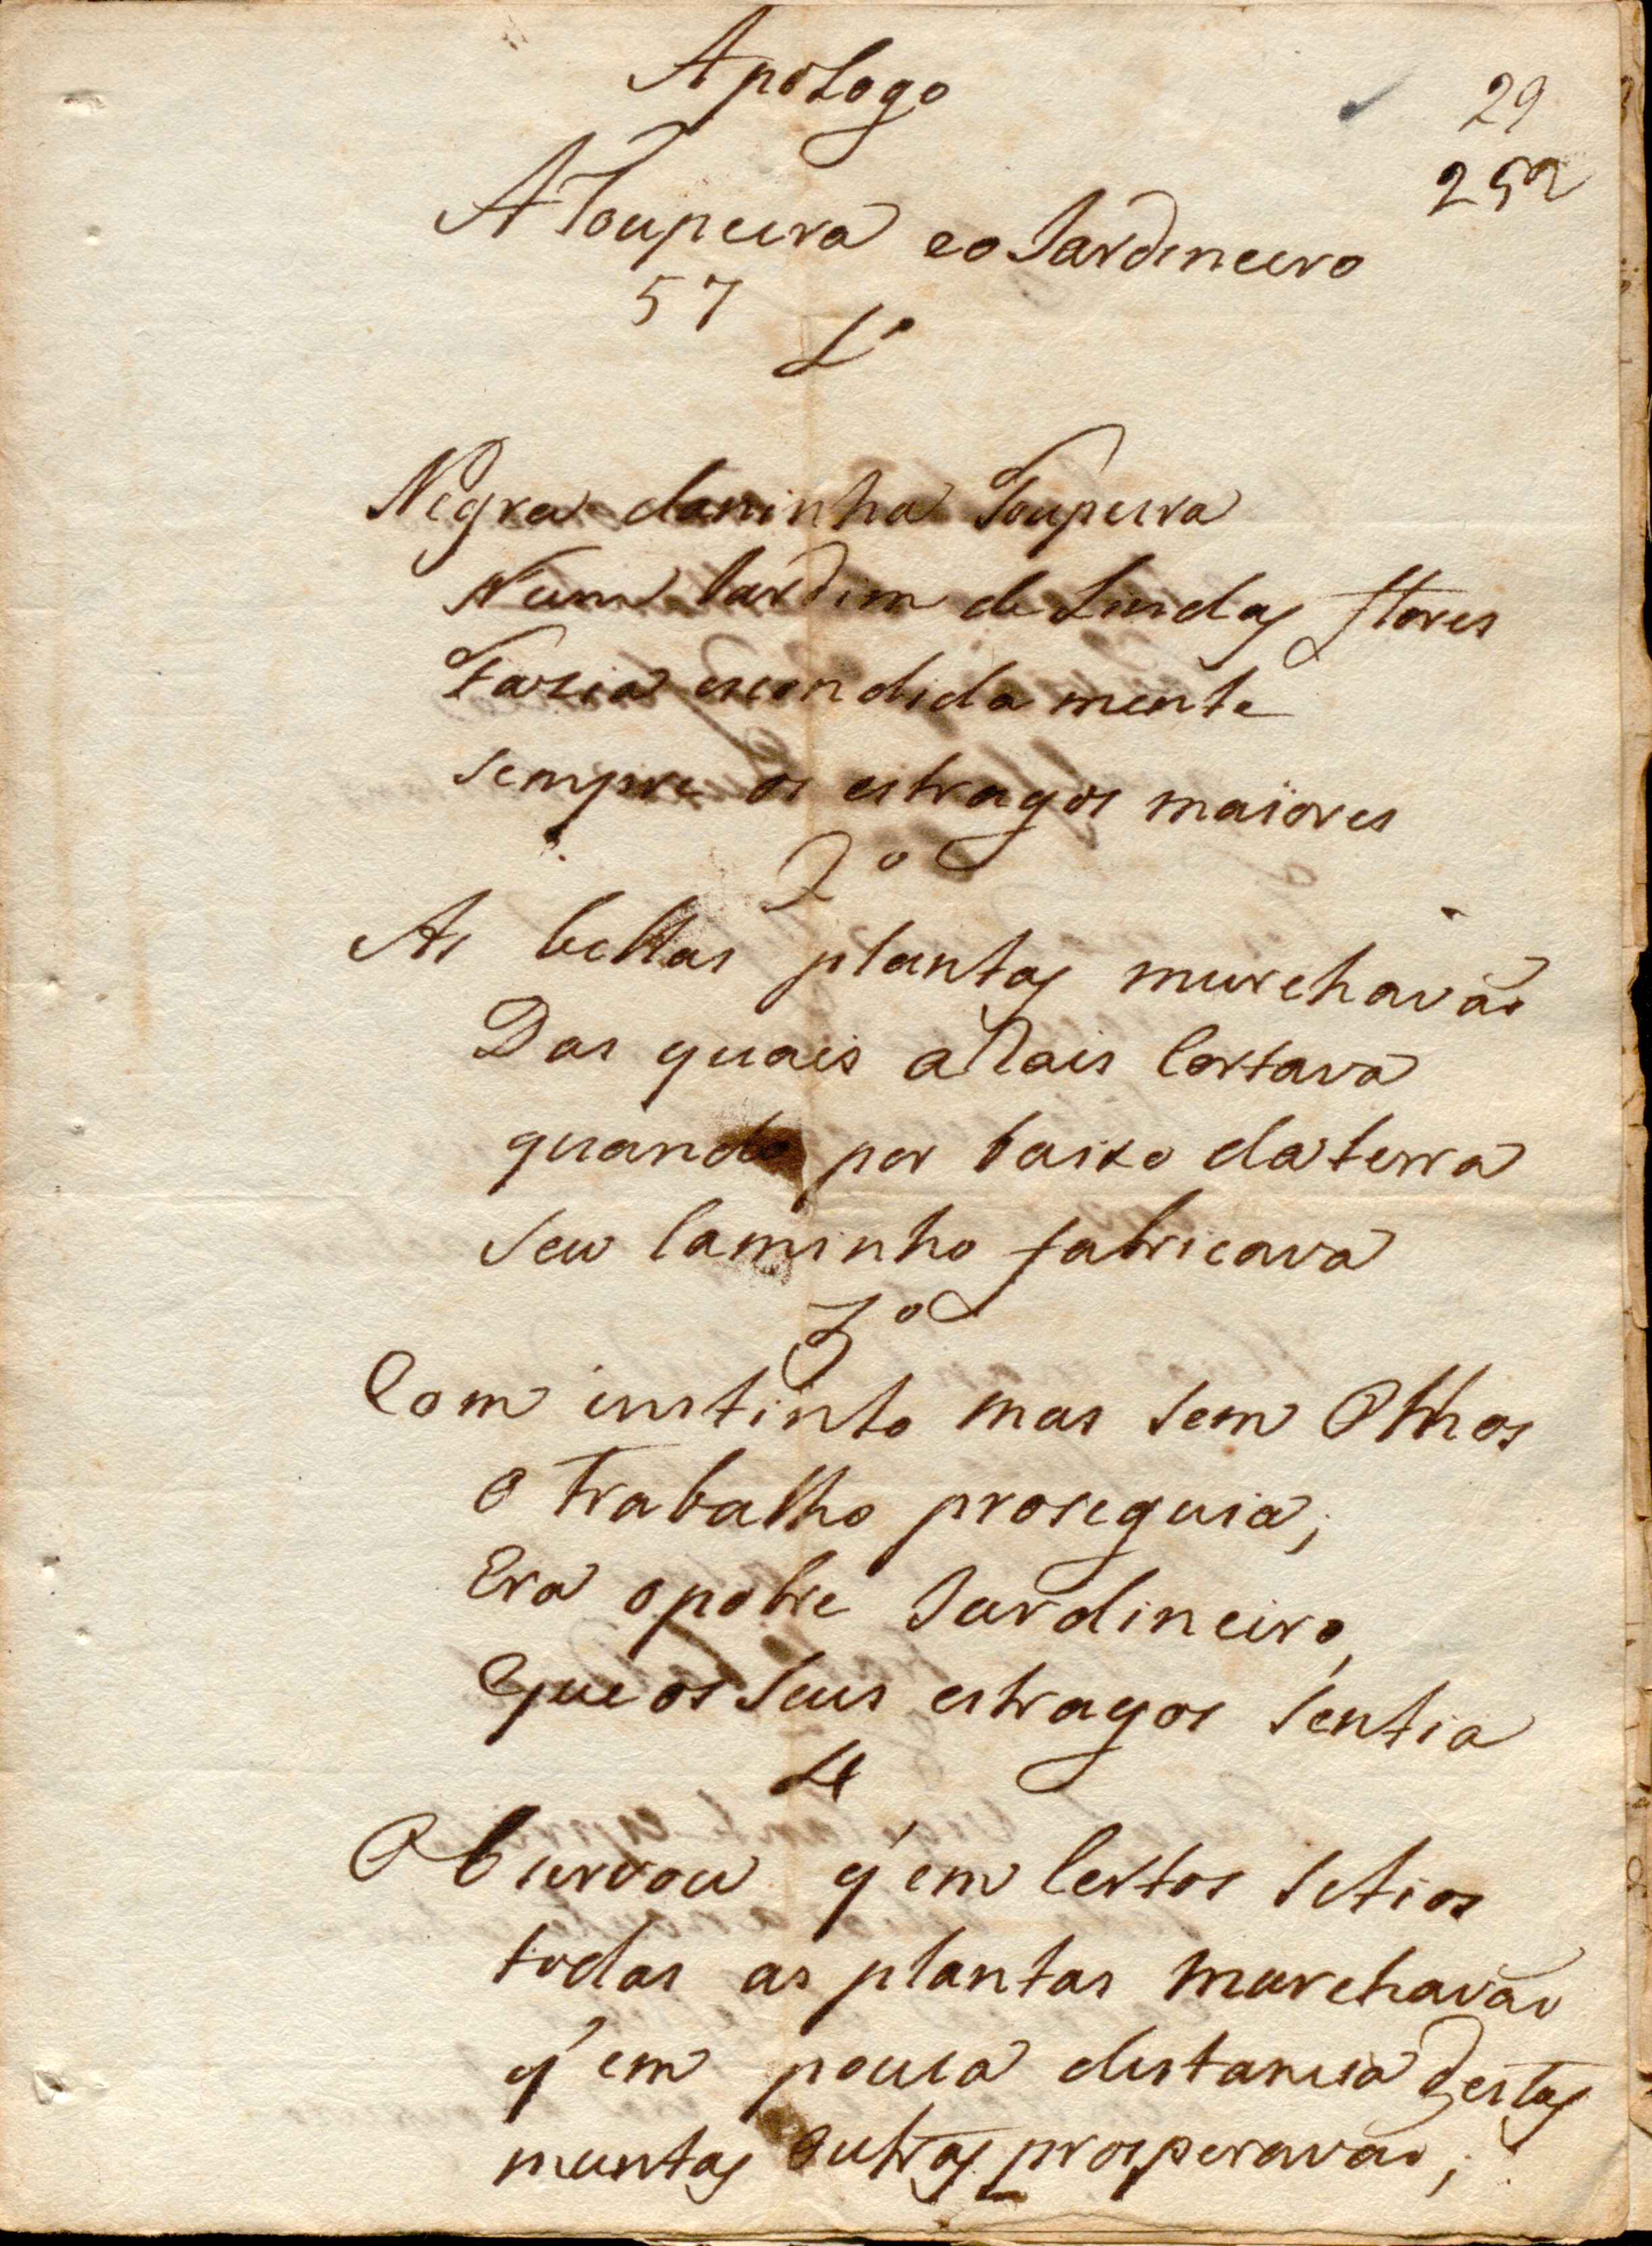 Apologo
29
252
A Toupeira eo Jardineiro
57
1º
Negra daninha Toupeira
Num Jardim de Lindas flores
Fazia escondida mente
sempre os estragos maiores
2º
As bellas plantas murchavão
Das quais a Rais Cortava
quando por baixo da terra
seu Caminho fabricava
3º
Com instinto mas sem Olhos
o trabalho proseguia;
Era o pobre Jardineiro,
Que os seus estragos sentia
4
Observou q' em Certos setios
todas as plantas murchavão
q' em pouca distancia destas
muntas Outras prosperavão;